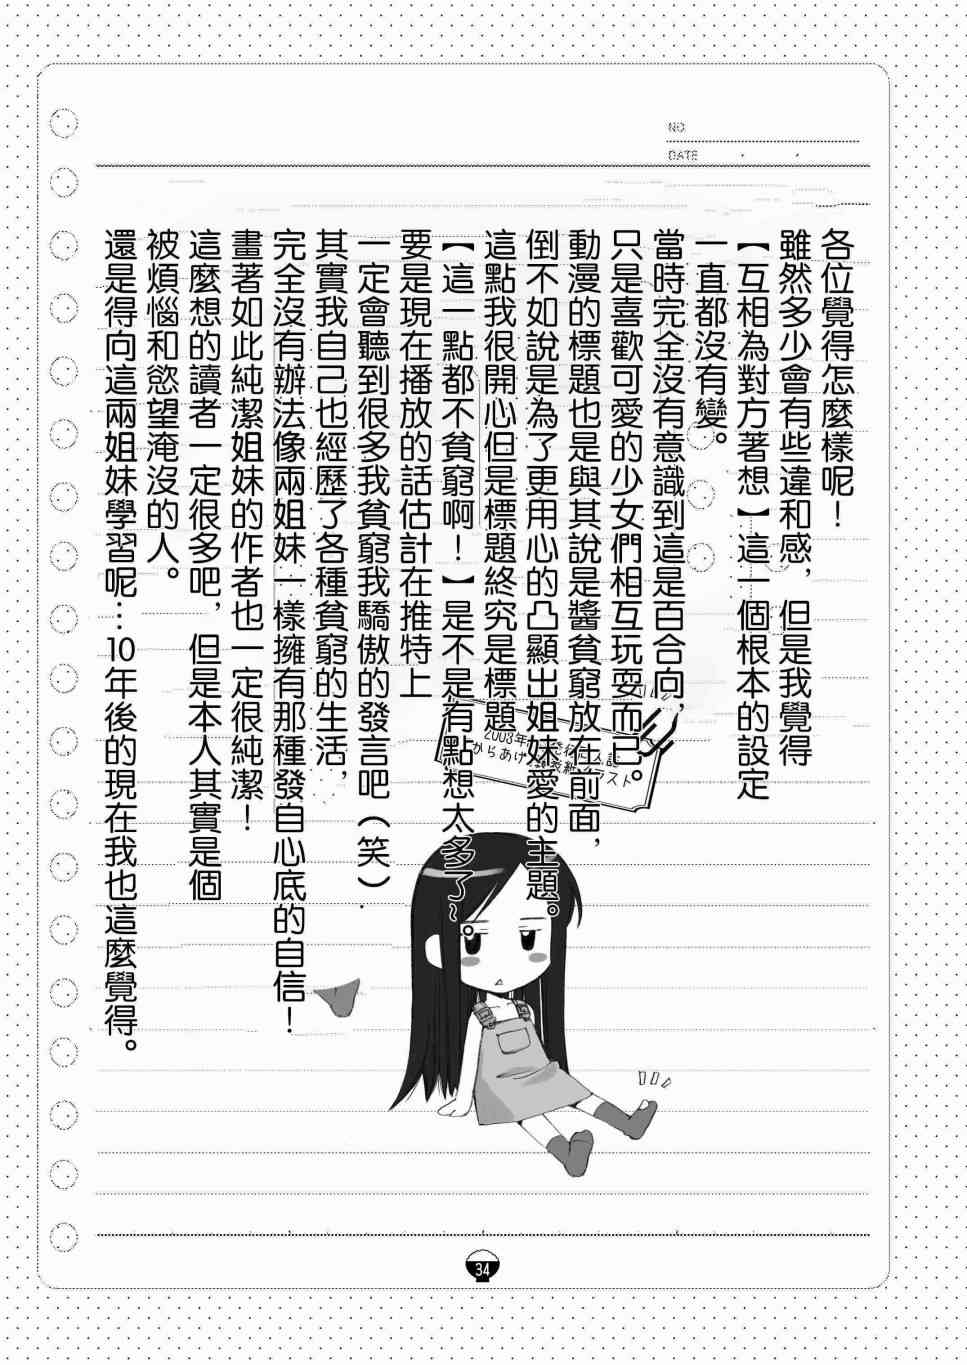 NO.
DATE
各位覺得怎麼樣呢！
雖然多少會有些違和感，但是我覺得
【互相為對方著想】這一個根本的設定
一直都沒有變。
當時完全沒有意識到這是百合向，
只是喜歡可愛的少女們相互玩耍而已。
動漫的標題也是與其說是醬貧窮放在前面，
倒不如說是為了更用心的凸顯出姐妹愛的主題。
這點我很開心但是標題終究是標題
【這一點都不貧窮啊！】是不是有點想太多了~。
要是現在播放的話估計在推特上
一定會聽到很多我貧窮我驕傲的發言吧（笑）.
其實我自己也經歷了各種貧窮的生活，
完全沒有辦法像兩姐妹一樣擁有那種發自心底的自信！
畫著如此純潔姐妹的作者也一定很純潔！
這麼想的讀者一定很多吧，但是本人其實是個
被煩惱和慾望淹沒的人。
還是得向這兩姐妹學習呢…10年後的現在我也這麼覺得。
2003年
からあげ
スト
34